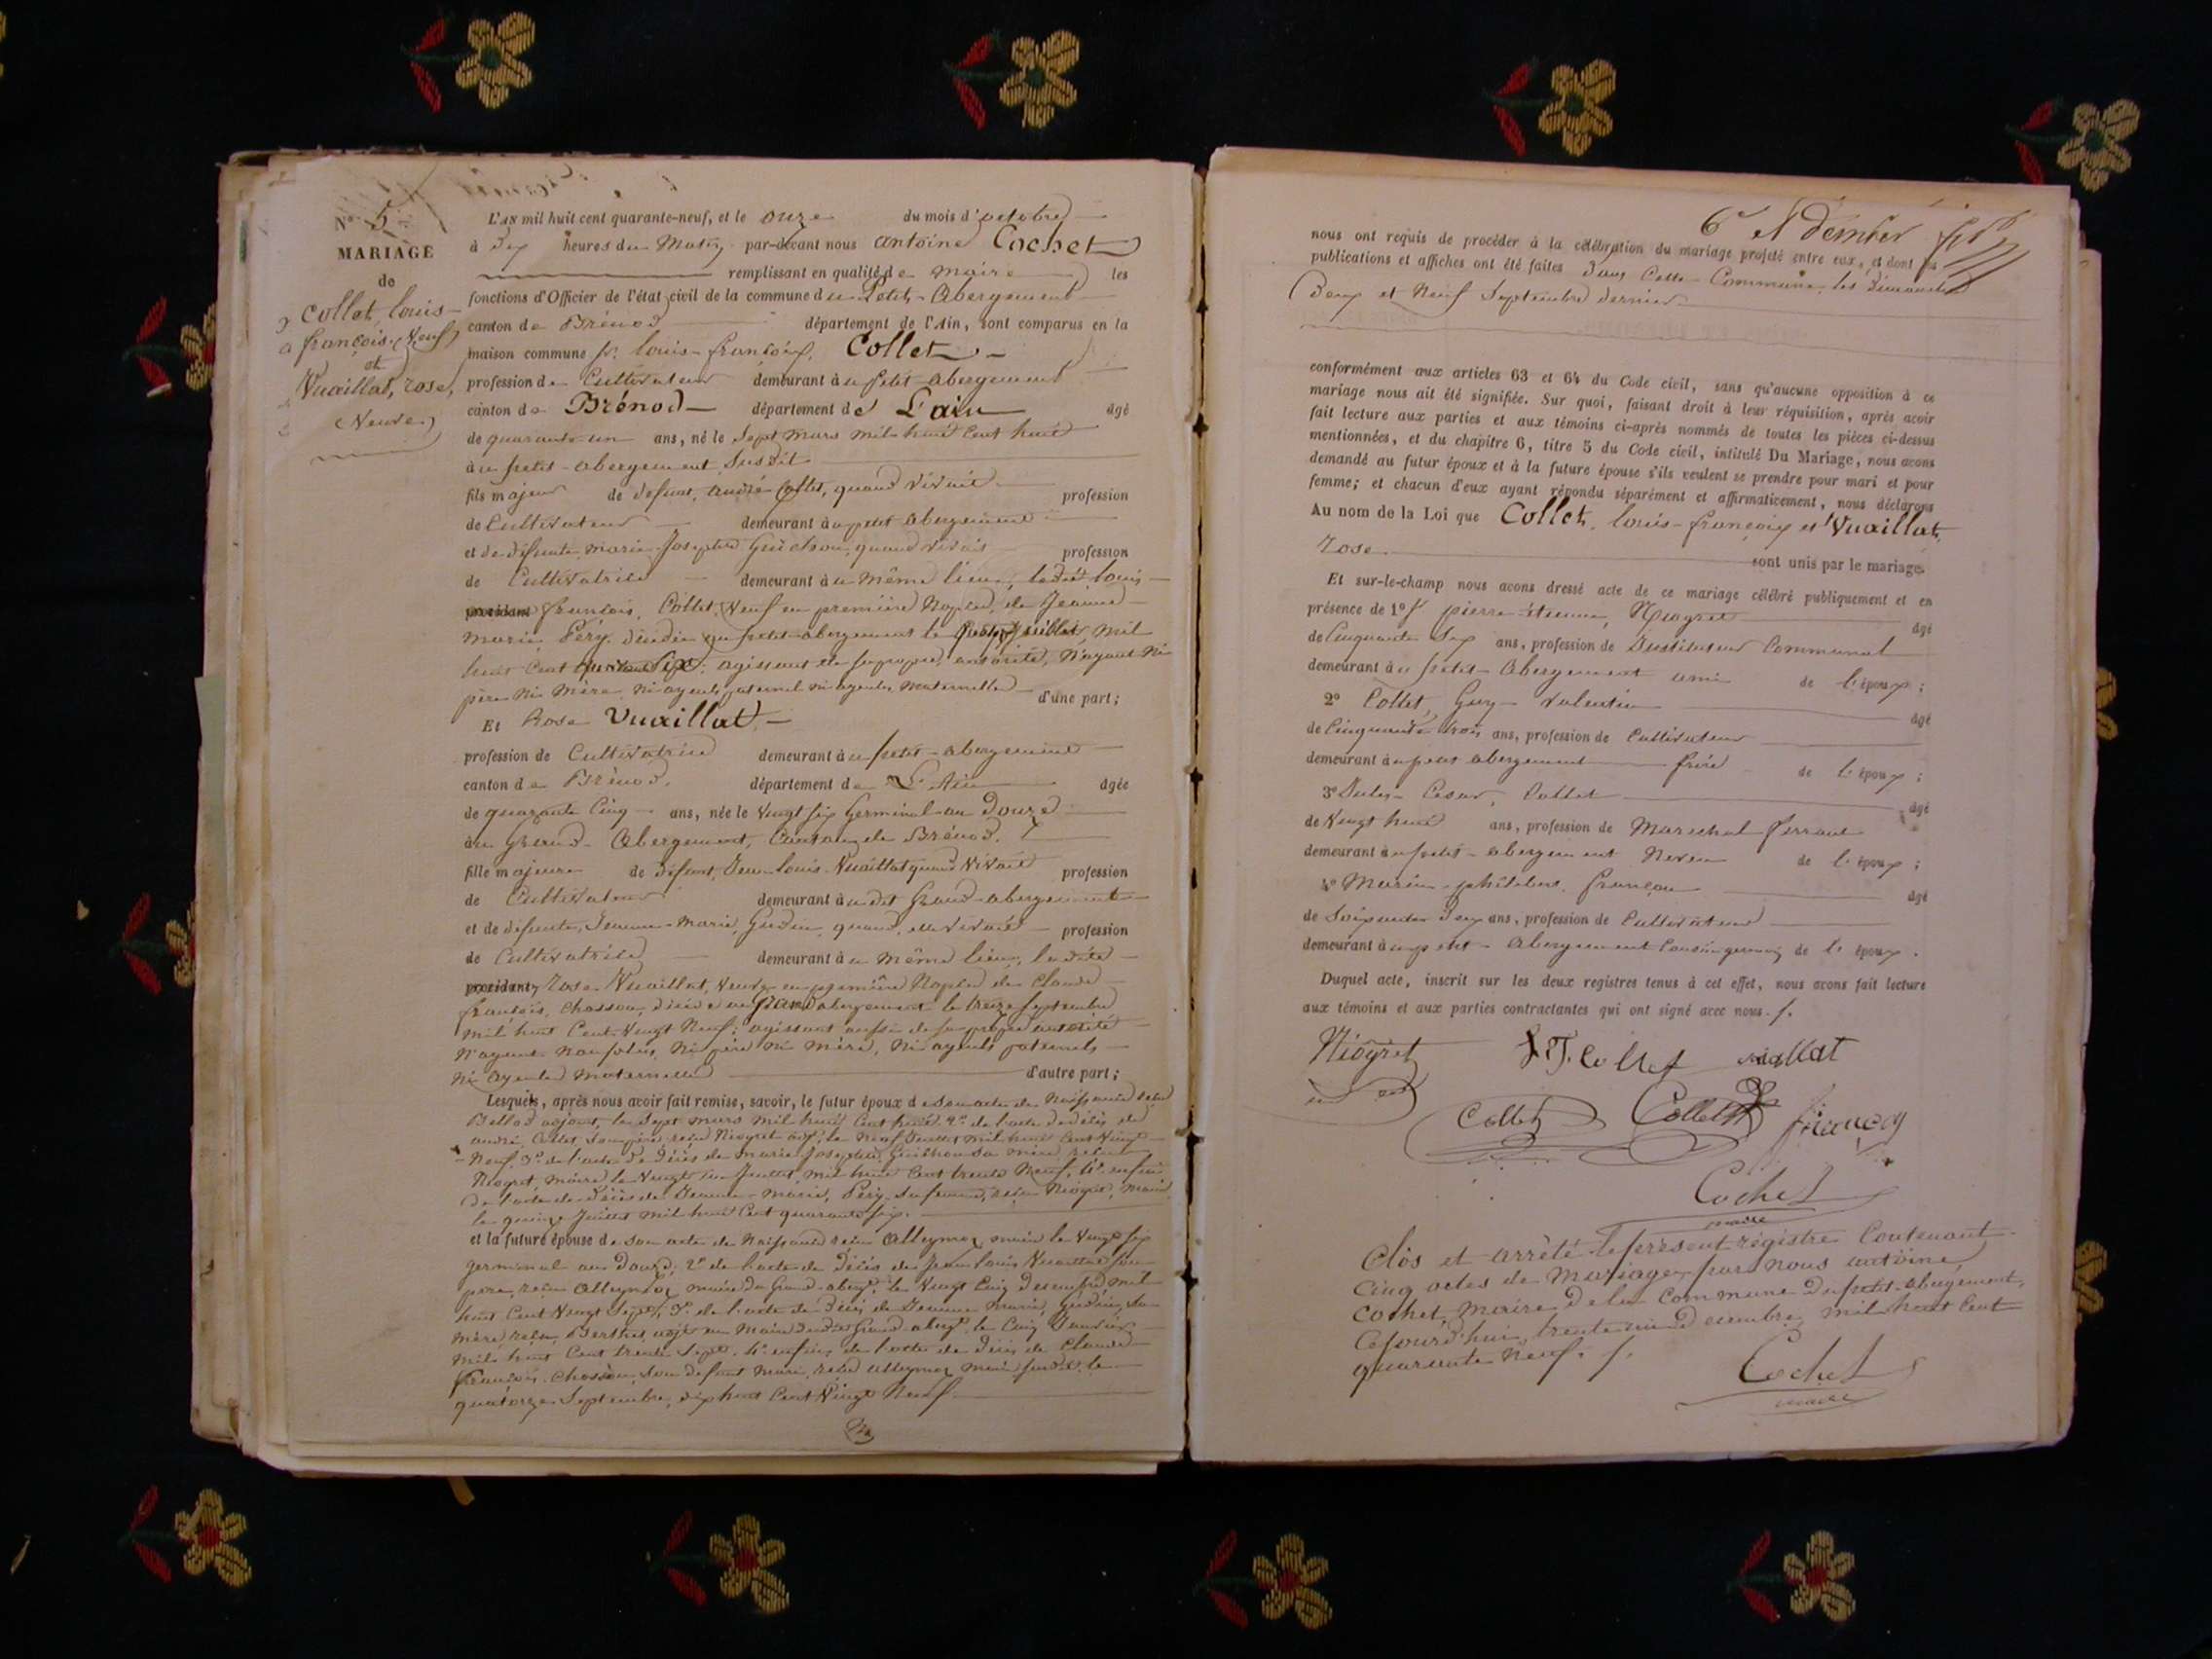 N° 5
MARIAGE
de
Collet, louis-
françois, Veuf,
et
Vuaillat, rose,
Veuve
L'AN mil huit cent quarante-neuf, et le onze du mois d'octobre
à dix heures du Matin par-devant nous antoine Cochet
remplissant en qualité de maire les
fonctions d'Officier de l'état civil de la commune du Petit-Abergement
canton de Brénod département de l'Ain, sont comparus en la
maison commune sr. louis-françois, Collet
profession de Cultivateur demeurant à u petit-abergement
canton de Brénod département de L'ain âgé
de quarante un ans, né le Sept mars mil huit Cent huit
à u petit-abergement susdit
fils majeur de defunt, andré Collet, quand vivait profession
de Cultivateur demeurant à u petit abergement
et de défunte, marie-Josephte quand vivait profession
de Cultivatrice demeurant à u même lieu, ledit louis-
françois, Collet, Veuf en première Noples, de Jeanne-
marie, Péry, décédée au petit-abergement le juillet, mil
huit Cent quarante Six; agissant de sa propre autorité, N'ayant Ni
père Ni Mère, Ni ayeuls paternels ni ayeules Maternelles d'une part;
Et Rose Vuaillat
profession de Cultivatrice demeurant à u petit-abergement
canton de Brénod. département de L'Ain âgée
de quarante Cinq ans, née le Vingt six Germinal an Douze
à u Grand-Abergement, Canton de Brénod.
fille majeure de défunt, Jean-louis Vuaillat quand Vivait profession
de Cultivateur demeurant à u dit Grand-abergement
et de défunte, Jeanne-Marie, Gudin, quand elle vivait profession
de Cultivatrice demeurant à u même lieu, ladite
rose Vuaillat, Veuve en première Noples de Claude
françois, Chosson, décédé au Grand abergement le treize Septembre
mil huit Cent Vingt Neuf; agissant aussi de sa propre autorité
N'ayant Non plus, Ni père Ni mère, Ni ayeuls paternels
Ni Ayeules Maternelles d'autre part;
Lesquels, après nous avoir fait remise, savoir, le futur époux de son acte de Naissance
adjoint, le Sept mars mil huit Cent huit, 2° de l'acte de décès de
andré, Collet, son père, reçu Niogret adjt, le Neuf Juillet mil huit Cent Vingt
Neuf, 3° de l'acte de Décès de marie Josephte, sa mère, reçu
Niogret maire le Vingt un Juillet, mil huit Cent trente Neuf, 4° enfin
de l'acte de décès de Jeanne-marie, Péry, sa femme, reçu Niogret, maire
le quinze Juillet mil huit Cent quarante six.
et la future épouse de son acte de Naissance reçu Alleymoz maire le Vingt six
germinal an Douze; 2° de l'acte de Décès de Jean louis Vuaillat son
père, reçu Alleymoz, maire du Grand-aberg. le Vingt Cinq Décembre mil
huit Cent Vingt Sept; 3° de l'acte de Décès de Jeanne Marie, Gudin, Sa
mère, reçu, adjt au Maire dudit Grand-aberg. le Cinq Janvier
mil huit Cent trente Sept, 4° enfin de l'acte de Décès de Claude
françois, Chosson, Son défunt mari, reçu Alleymoz maire susdit, le
quatorze Septembre, dix huit Cent Vingt Neuf.
6e et dernier
nous ont requis de procéder à la célébration du mariage projeté entre eux, et dont les
publications et affiches ont été faites Dans Cette Commune, les Dimanches
Deux et Neuf Septembre dernier
conformément aux articles 63 et 64 du Code civil, sans qu'aucune opposition à ce
mariage nous ait été signifiée. Sur quoi, faisant droit à leur réquisition, après avoir
fait lecture aux parties et aux témoins ci-après nommés de toutes les pièces ci-dessus
mentionnées, et du chapitre 6, titre 5 du Code civil, intitulé Du Mariage, nous avons
demandé au futur époux et à la future épouse s'ils veulent se prendre pour mari et pour
femme; et chacun d'eux ayant répondu séparément et affirmativement, nous déclarons
Au nom de la Loi que Collet, louis-françois et Vuaillat,
rose sont unis par le mariage.
Et sur-le-champ nous avons dressé acte de ce mariage célébré publiquement et en
présence de 1° sr pierre-étienne, Niogret âgé
de Cinquante Six ans, profession de Instituteur Communal
demeurant à u petit-Abergement ami de l'époux;
2° Collet, Guy-Valentin âgé
de Cinquante trois ans, profession de Cultivateur
demeurant à u petit abergement frère de l'époux;
3° Jules-Cesar, Collet âgé
de Vingt huit ans, profession de Maréchal ferrant
demeurant à u petit-abergement Neveu de l'époux;
4° Marin-philibert, françon âgé
de Soixante Deux ans, profession de Cultivateur
demeurant à u petit-Abergement Cousin germain de l'époux.
Duquel acte, inscrit sur les deux registres tenus à cet effet, nous avons fait lecture
aux témoins et aux parties contractantes qui ont signé avec nous.
Niogret L.F. Collet vuallat
Collet Collet françon
Cochet
maire
Clos et arrêté le présent registre Contenant
Cinq actes de Mariage, par nous antoine
Cochet, Maire de la Commune du petit-abergement,
Cejourd'hui, trente un Décembre, mil huit Cent
quarante Neuf.
Cochet
maire